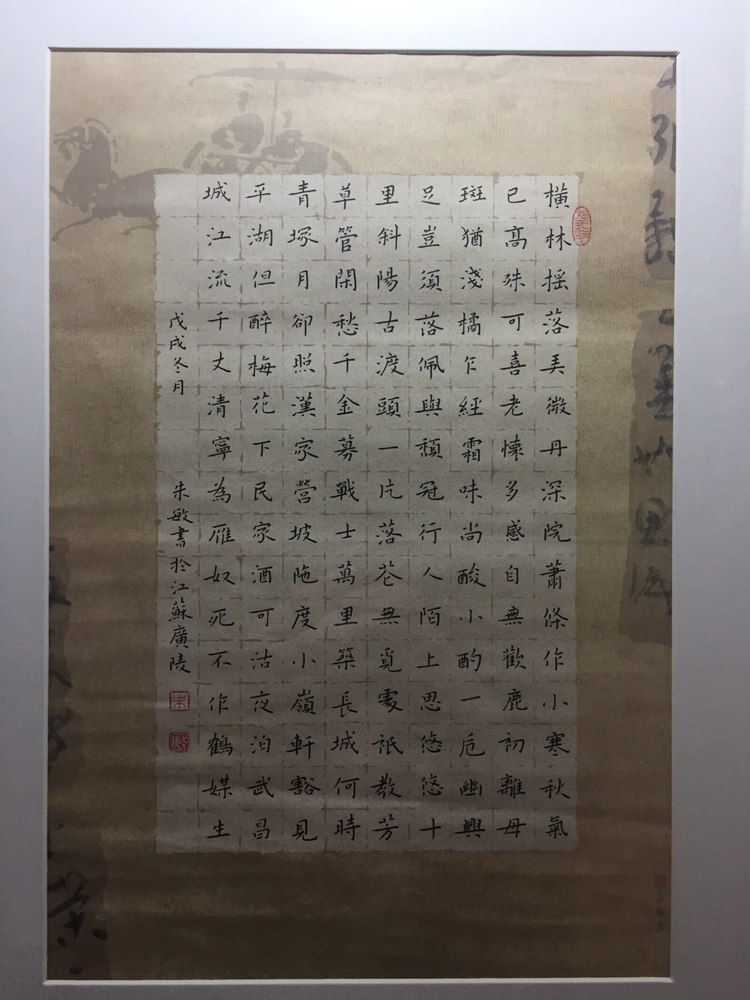 橫林搖落弄微丹深院蕭條作小寒秋氣
已高殊可喜老懷多感自無歡鹿初離母
斑猶淺橘乍經霜味尚酸小酌一卮幽興
足豈須落佩與頹冠行人陌上思悠悠十
里斜陽古渡頭一片落花無覓處祇教芳
草管閑愁千金募戰士萬里築長城何時
青塚月卻照漢家營坡陁度小嶺軒豁見
平湖但醉梅花下民家酒可沽夜泊武昌
城江流千丈清寧為雁奴死不作鶴媒生
戊戌冬月 朱敏書於江蘇廣陵